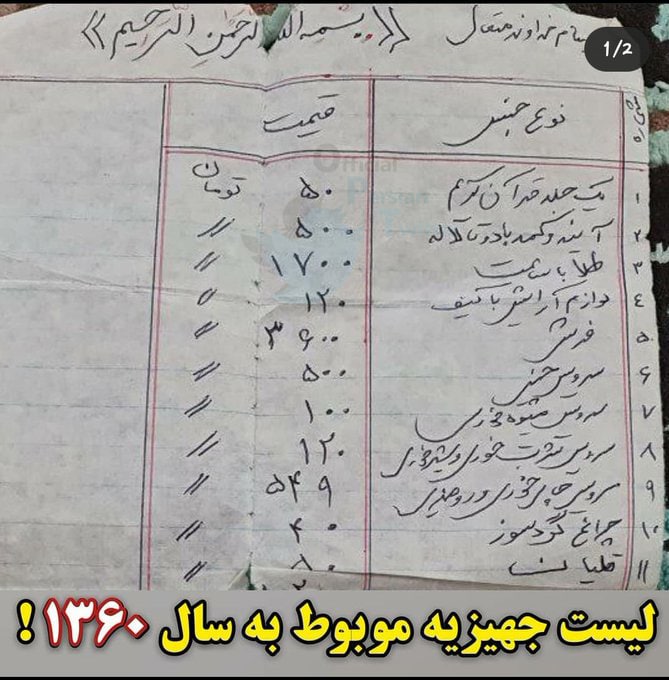 1/2
بنام خداوند متعال «بسمه الله الرحمن الرحیم»
شماره نوع جنس قیمت
۱ یک جلد قرآن کریم ۵۰ تومان
۲ آینه و کمد با دو تا لاله ۵۰۰ //
۳ طلا با ساعت ۱۷۰۰ //
۴ لوازم آرایش با کیف ۱۲۰ //
۵ فرش ۳۶۰۰ //
۶ سرویس چینی ۵۰۰ //
۷ سرویس میوه خوری ۱۰۰ //
۸ سرویس شربت خوری و شیر خوری ۱۲۰ //
۹ سرویس چای خوری و ۵۴۹ //
۱۰ چراغ گردسوز ۴۰ //
۱۱ قلیان //
Official
Persian
Twitter
لیست جهیزیه موبوط به سال ۱۳۶۰!